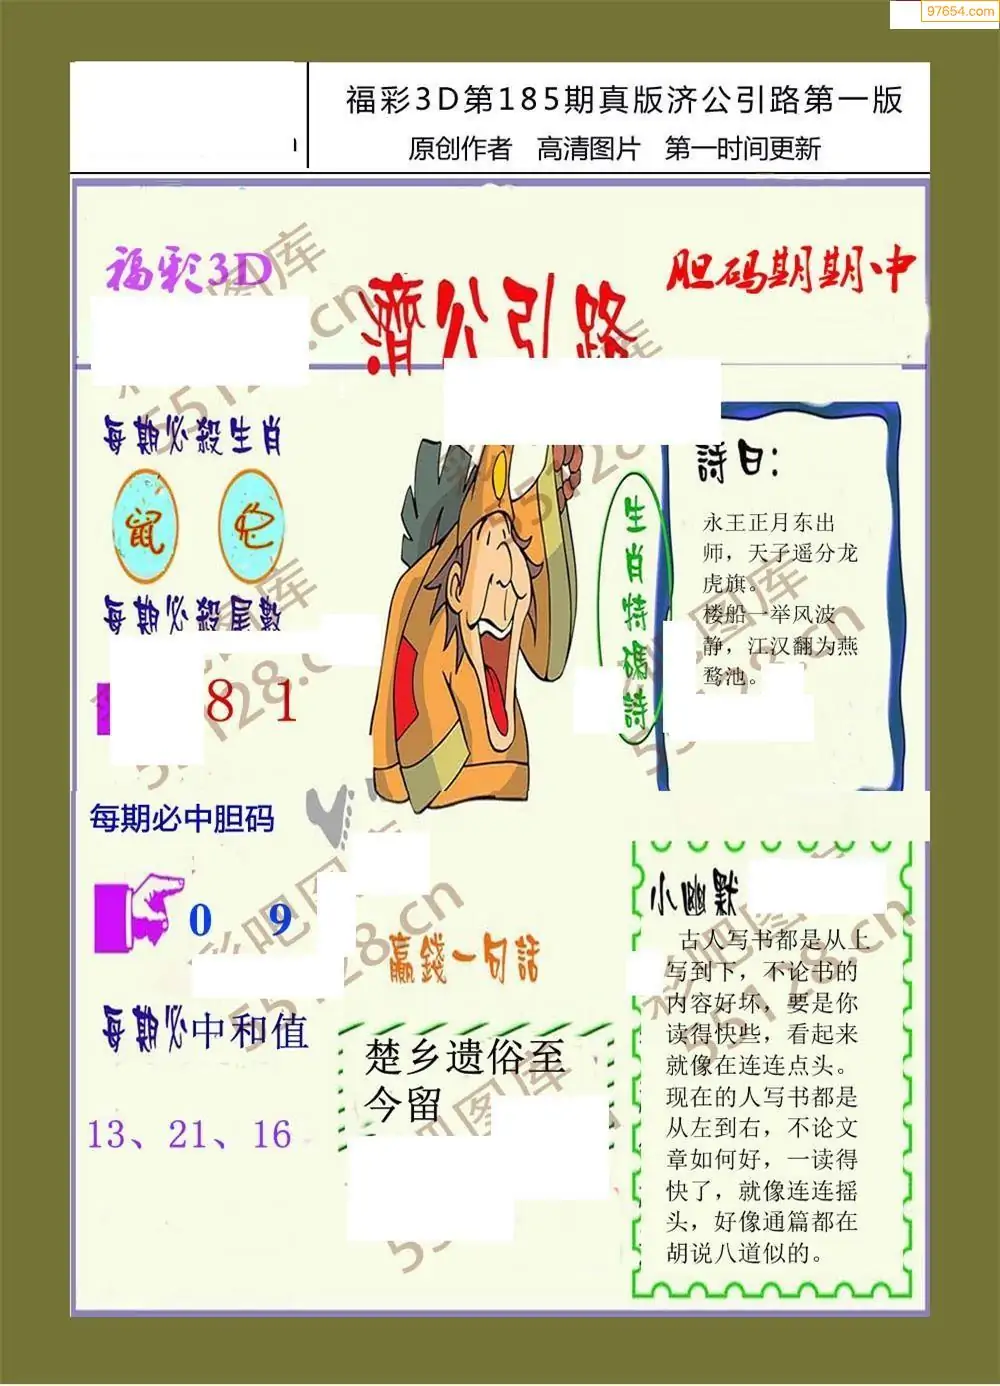 97654.com
福彩3D第185期真版济公引路第一版
原创作者 高清图片 第一时间更新
福彩3D
濟公引路
胆码期期中
每期必殺生肖
鼠
每期必殺尾數
8 1
每期必中胆码
0 9
每期必中和值
13、21、16
生肖特碼詩
詩曰:
永王正月东出
师，天子遥分龙
虎旗。
楼船一举风波
静，江汉翻为燕
鹜池。
赢錢一句話
楚乡遗俗至
今留
小幽默
古人写书都是从上
写到下，不论书的
内容好坏，要是你
读得快些，看起来
就像在连连点头。
现在的人写书都是
从左到右，不论文
章如何好，一读得
快了，就像连连摇
头，好像通篇都在
胡说八道似的。
彩吧图库
55128.cn